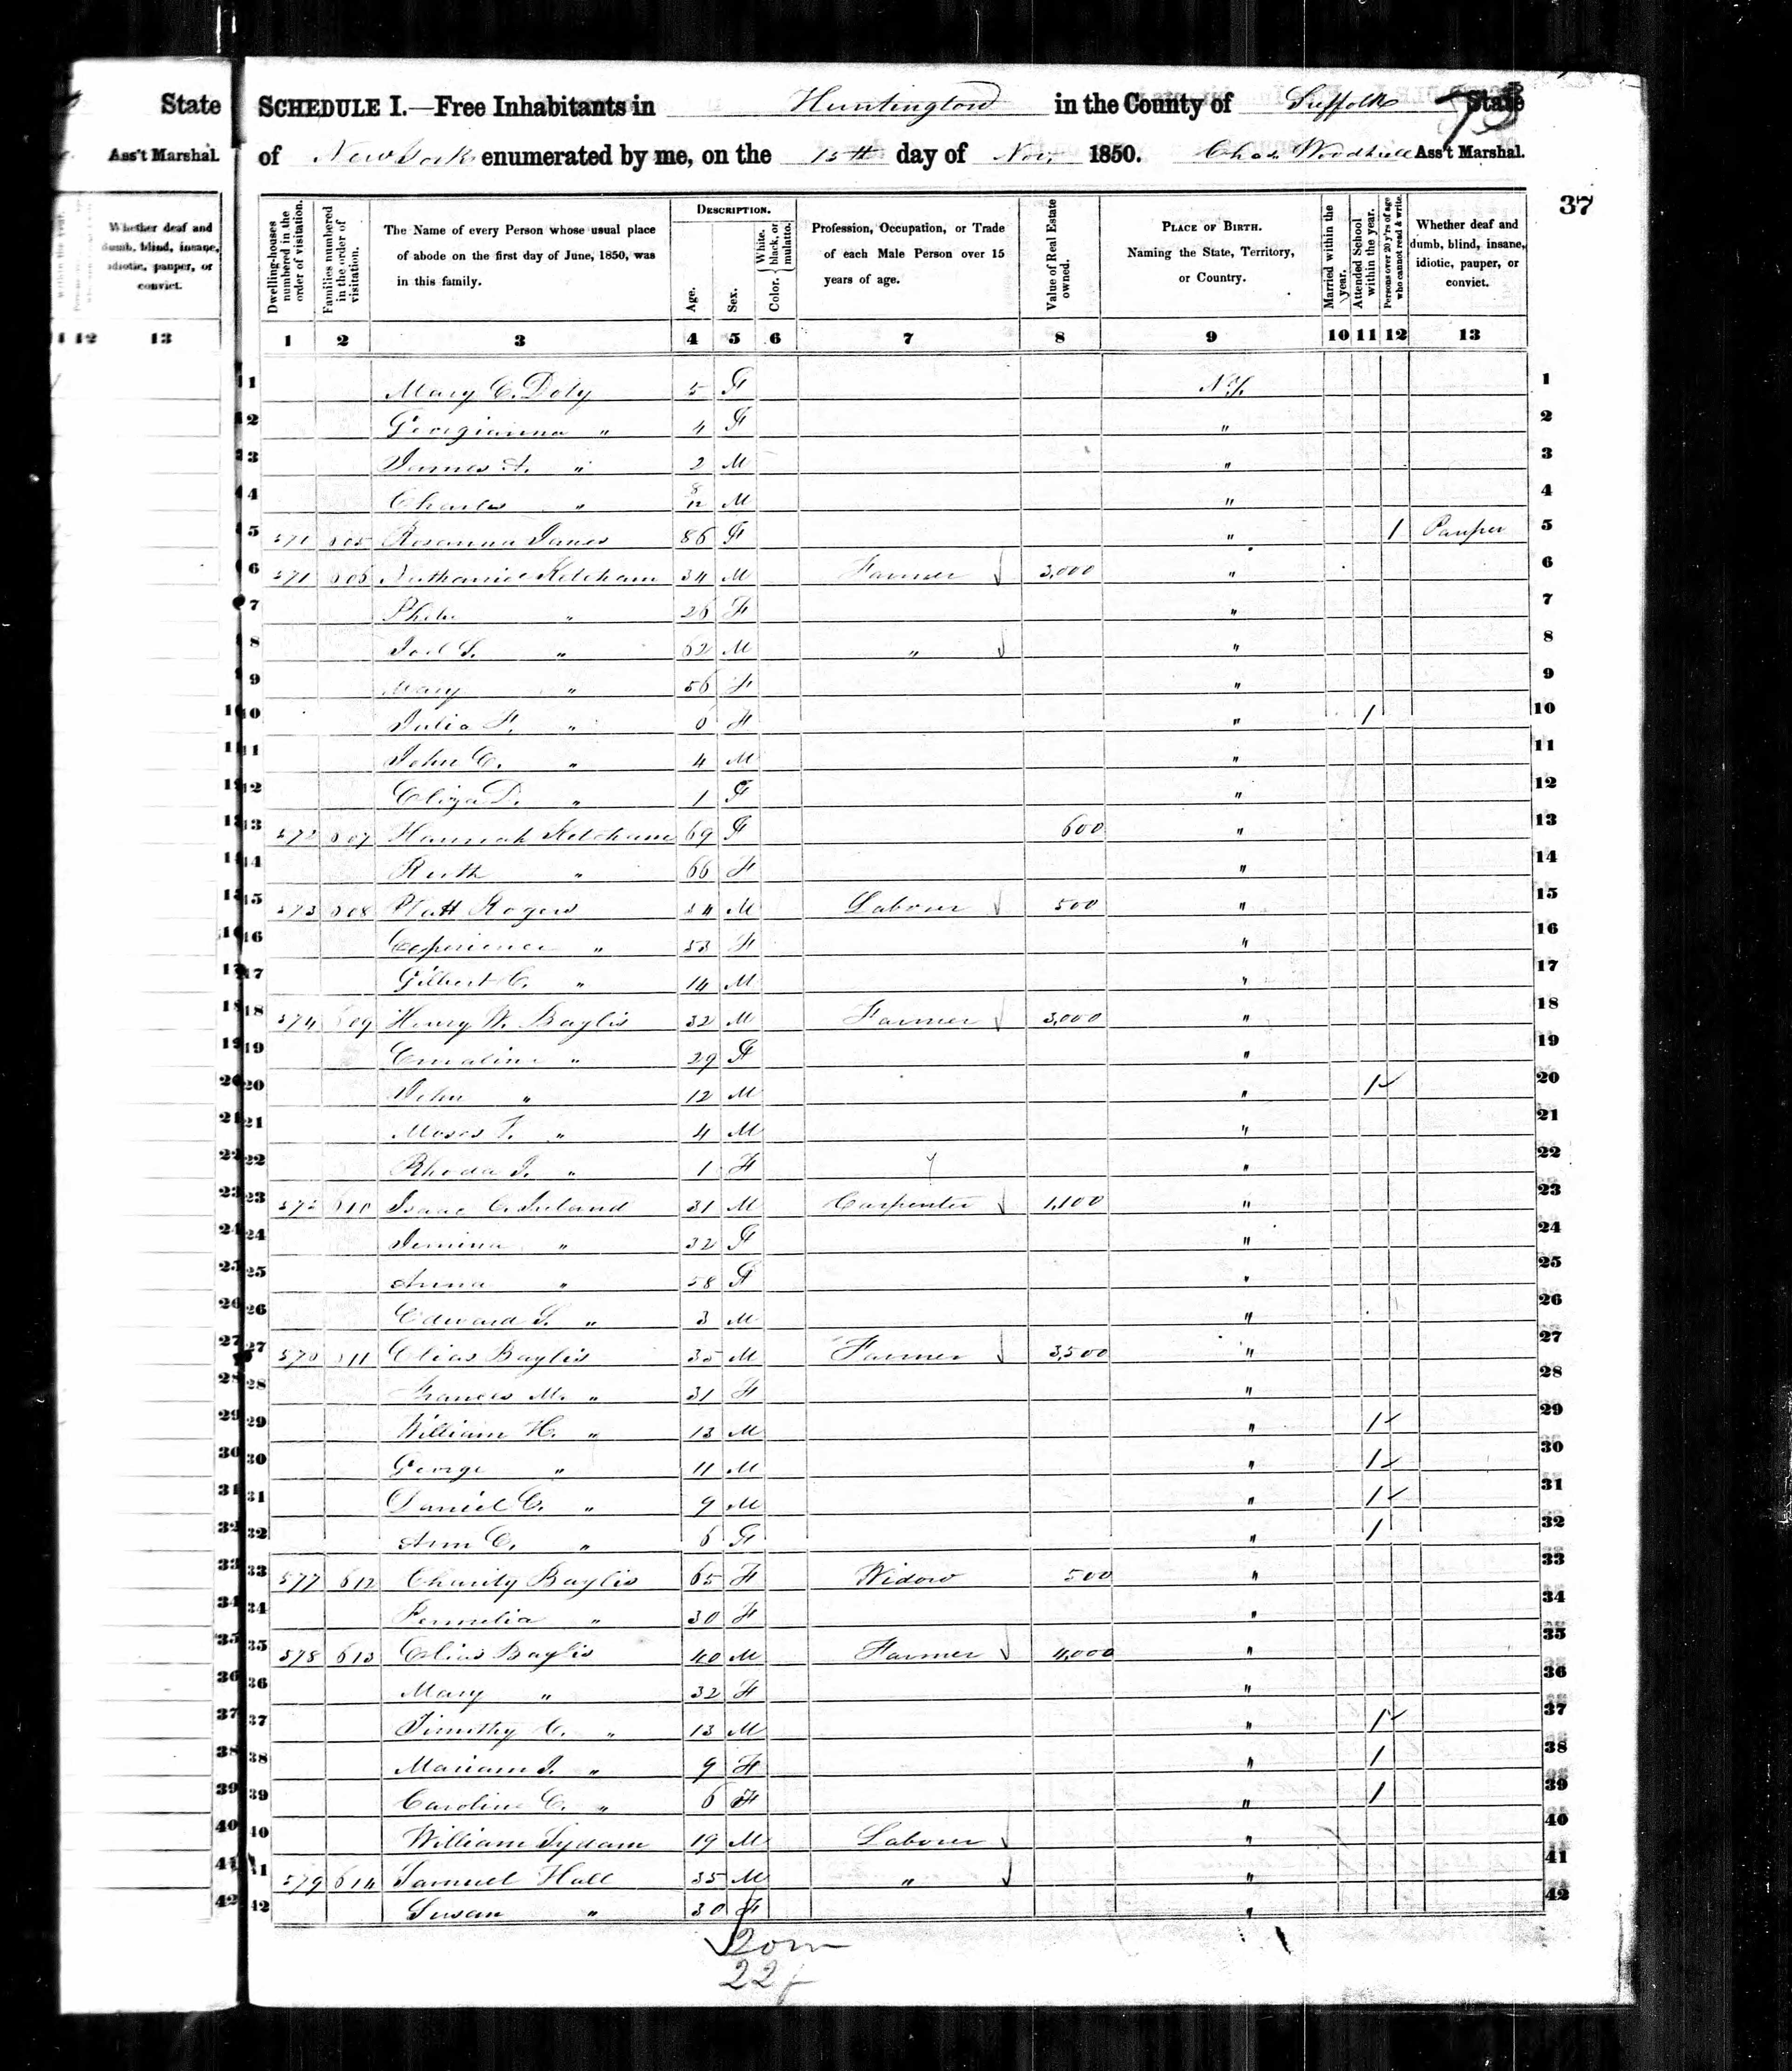 State
Ass't Marshal.
Whether deaf and dumb, blind, insane, idiotic, pauper, or convict.
12 13
SCHEDULE I.—Free Inhabitants in Huntington in the County of Suffolk State
of New York enumerated by me, on the 15th day of Nov. 1850. Chas. Woodhull Ass't Marshal.
37
Dwelling-houses numbered in the order of visitation.
Families numbered in the order of visitation.
The Name of every Person whose usual place of abode on the first day of June, 1850, was in this family.
DESCRIPTION.
Age.
Sex.
Color. { White, black, or mulatto.
Profession, Occupation, or Trade of each Male Person over 15 years of age.
Value of Real Estate owned.
PLACE OF BIRTH. Naming the State, Territory, or Country.
Married within the year.
Attended School within the year.
Persons over 20 y'rs of age who cannot read & write.
Whether deaf and dumb, blind, insane, idiotic, pauper, or convict.
1 2 3 4 5 6 7 8 9 10 11 12 13
1 Mary C. Doty 5 F N.Y. 1
2 Georgianna " 4 F " 2
3 James A. " 2 M " 3
4 Charles " 8/12 M " 4
5 571 605 Rosanna Janes 86 F " 1 Pauper 5
6 571 606 Nathaniel Ketcham 34 M Farmer 3,000 " 6
7 Phebe " 26 F " 7
8 Joel S. " 62 M " " 8
9 Mary " 56 F " 9
10 Julia F. " 6 F " 1 10
11 John C. " 4 M " 11
12 Eliza D. " 1 F " 12
13 572 607 Hannah Ketcham 69 F 600 " 13
14 Ruth " 66 F " 14
15 573 608 Platt Rogers 54 M Laborer 500 " 15
16 Experience " 53 F " 16
17 Gilbert C. " 14 M " 17
18 574 609 Henry W. Baylis 32 M Farmer 3,000 " 18
19 Emaline " 29 F " 19
20 John " 12 M " 1 20
21 Moses T. " 4 M " 21
22 Rhoda J. " 1 F " 22
23 575 610 Isaac C. Ireland 31 M Carpenter 1,100 " 23
24 Jemima " 32 F " 24
25 Anna " 58 F " 25
26 Edward S. " 3 M " 26
27 576 611 Elias Baylis 35 M Farmer 3,500 " 27
28 Frances M. " 31 F " 28
29 William H. " 13 M " 1 29
30 George " 11 M " 1 30
31 Daniel C. " 9 M " 1 31
32 Ann E. " 6 F " 1 32
33 577 612 Charity Baylis 65 F Widow 500 " 33
34 Permelia " 30 F " 34
35 578 613 Elias Baylis 40 M Farmer 4,000 " 35
36 Mary " 32 F " 36
37 Timothy C. " 13 M " 1 37
38 Mariam J. " 9 F " 1 38
39 Caroline E. " 6 F " 1 39
40 William Sydam 19 M Laborer " 40
41 579 614 Samuel Hall 35 M " " 41
42 Susan " 30 F " 42
20m
22f